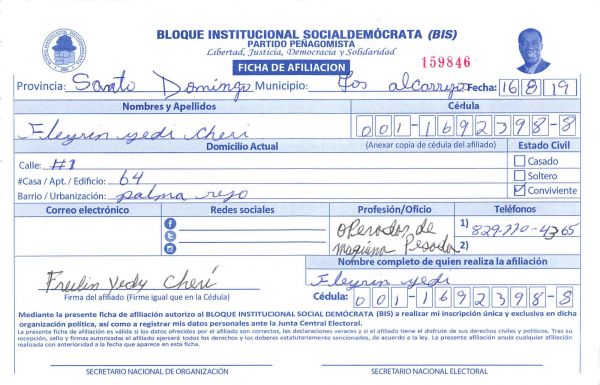 BLOQUE INSTITUCIONAL SOCIALDEMÓCRATA (BIS)
PARTIDO PEÑAGOMISTA
Libertad, Justicia, Democracia y Solidaridad
FICHA DE AFILIACION
159846
Provincia: Santo Domingo Municipio: los alcarryo Fecha: 16 8 19
Nombres y Apellidos Cédula
Fleyrin yedi Cheri 001-1692398-8
Domicilio Actual (Anexar copia de cédula del afiliado) Estado Civil
Calle: #1 Casado
#Casa / Apt. / Edificio: 64 Soltero
Barrio / Urbanización: palma rejo Conviviente
Correo electrónico Redes sociales Profesión/Oficio Teléfonos
operador de 1) 829-770-4365
maquina Pesada 2)
Nombre completo de quien realiza la afiliación
Freilin Yedy Cheri Fleyrin yedi
Firma del afiliado (Firme igual que en la Cédula) Cédula: 001-1692398-8
Mediante la presente ficha de afiliación autorizo al BLOQUE INSTITUCIONAL SOCIAL DEMÓCRATA (BIS) a realizar mi inscripción única y exclusiva en dicha
organización política, así como a registrar mis datos personales ante la Junta Central Electoral.
La presente ficha de afiliación es válida si los datos ofrecidos por el afiliado son correctos, las declaraciones veraces y si el afiliado tiene el disfrute de sus derechos civiles y políticos. Tras su
recepción, sello y firmas autorizadas el afiliado ejercerá todos los derechos y los deberes estatutariamente sancionados, de acuerdo a la ley. La presente afiliación anula cualquier afiliación
realizada con anterioridad a la fecha que aparece en esta ficha.
SECRETARIO NACIONAL DE ORGANIZACIÓN SECRETARIO NACIONAL ELECTORAL